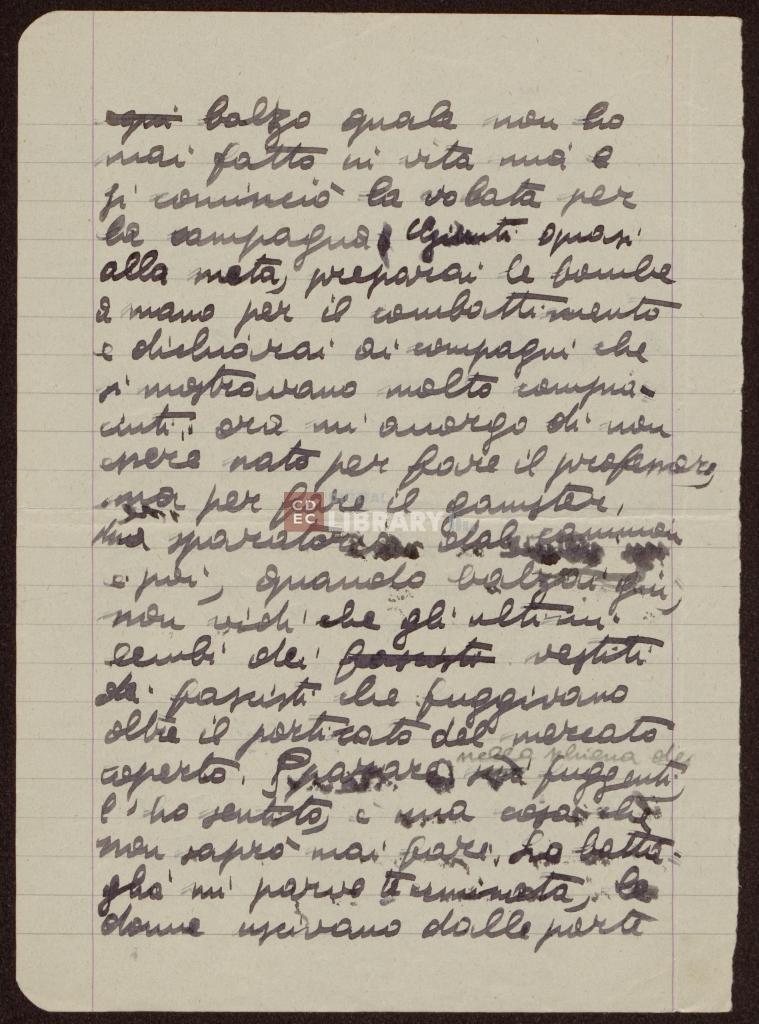 qui balzo quale non ho
mai fatto in vita mia e
si cominciò la volata per
la campagna. Giunti quasi
alla meta, preparai le bombe
a mano per il combattimento
e dichiarai ai compagni che
si mostravano molto compia-
ciuti: ora mi accorgo di non
essere nato per fare il professore,
ma per fare il gamster,
una sparatoria dal cammion
e poi, quando balzai giù,
non vidi che gli ultimi
lembi dei fascisti vestiti
di fascisti che fuggivano
oltre il porticato del mercato
nella schiena dei
coperto. Sparare fuggenti,
l'ho sentito, è una cosa che
non saprò mai fare. La batta-
glia mi parve terminata, le
donne uscivano dalle porte
CDEC
DIGITAL
LIBRARY